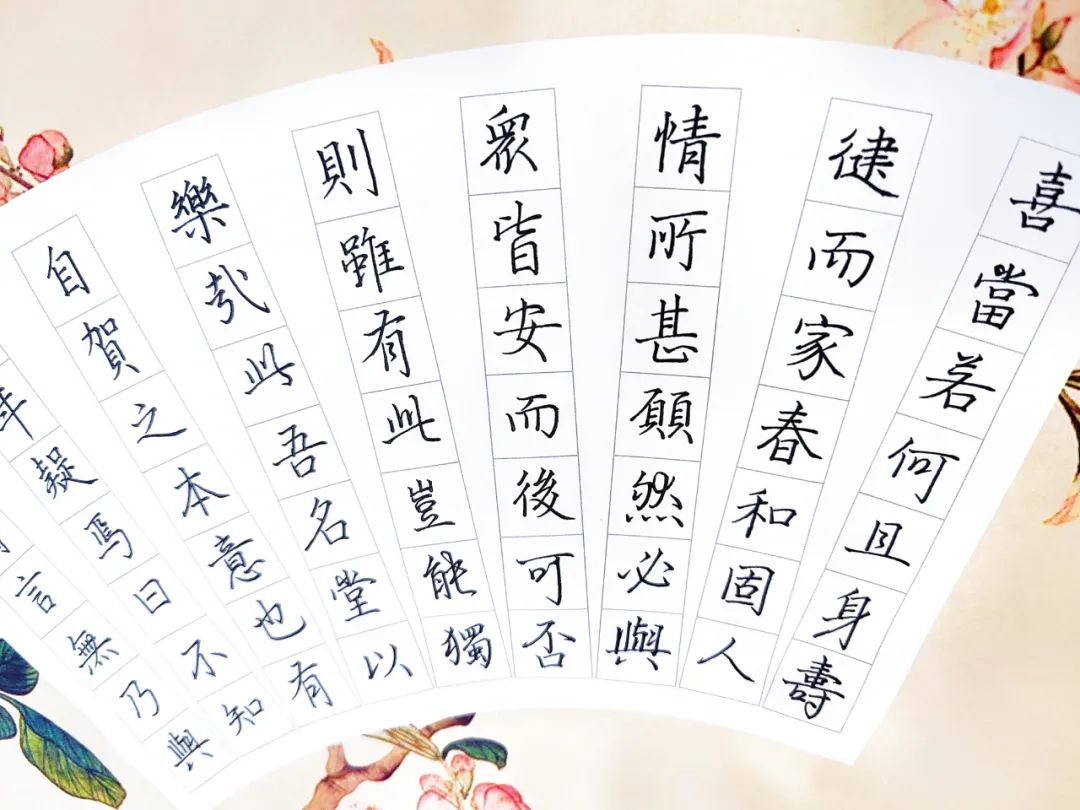 喜當若何且身壽
徤而家春和固人
情所甚願然必與
眾皆安而後可否
則雖有此豈能獨
樂哉此吾名堂以
自賀之本意也有
疑焉曰不知
言無乃與